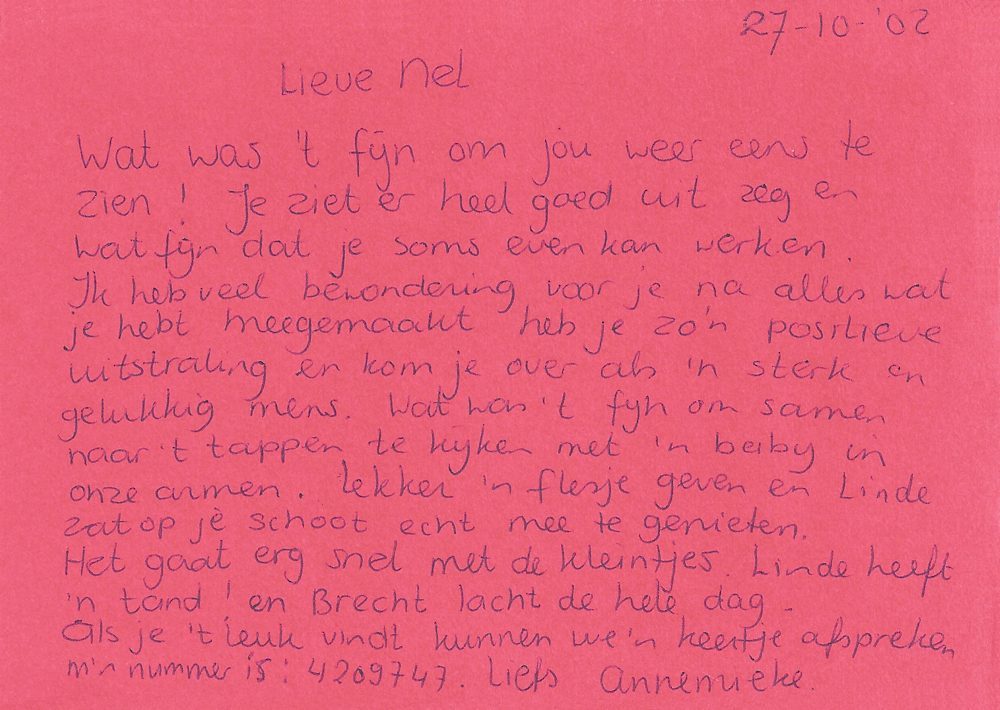 27-10-'02
Lieve Nel
Wat was 't fijn om jou weer eens te
zien! Je ziet er heel goed uit zeg en
wat fijn dat je soms even kan werken.
Ik heb veel bewondering voor je na alles wat
je hebt meegemaakt heb je zo'n positieve
uitstraling en kom je over als 'n sterk en
gelukkig mens. Wat was 't fijn om samen
naar 't tappen te kijken met 'n baiby in
onze armen. Lekker 'n flesje geven en Linde
zat op jè schoot echt mee te genieten.
Het gaat erg snel met de kleintjes. Linde heeft
'n tand! en Brecht lacht de hele dag.
Als je 't leuk vindt kunnen we 'n keertje afspreken
m'n nummer is: 4209747. Liefs Annemieke.